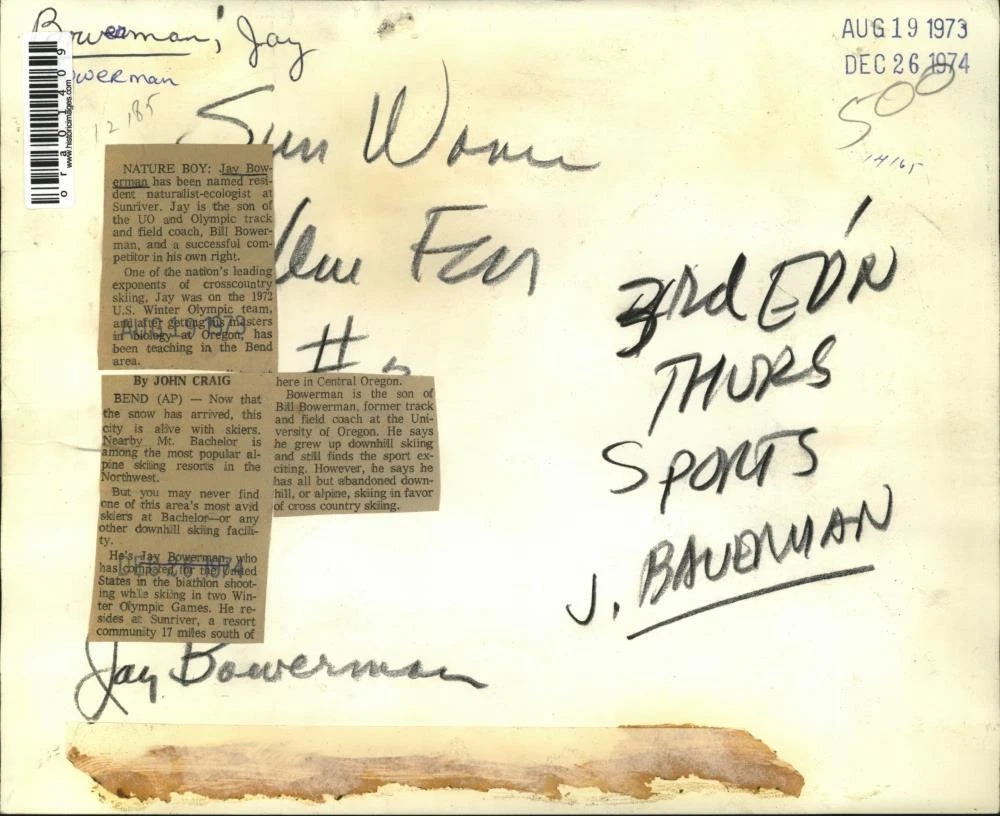 Bowerman, Jay
AUG 19 1973
DEC 26 1974
Bowerman
12185
500
14165
www.historicimages.com
Sun
NATURE BOY: Jay Bow-
erman has been named resi-
dent naturalist-ecologist at
Sunriver. Jay is the son of
the UO and Olympic track
and field coach, Bill Bower-
man, and a successful com-
petitor in his own right.
One of the nation's leading
exponents of crosscountry
skiing, Jay was on the 1972
U.S. Winter Olympic team,
and after getting his masters
in biology at Oregon, has
been teaching in the Bend
area.
AUG 19 1973
#
3rd EDN
THURS
SPORTS
J. BAUERMAN
By JOHN CRAIG
BEND (AP) — Now that
the snow has arrived, this
city is alive with skiers.
Nearby Mt. Bachelor is
among the most popular al-
pine skiing resorts in the
Northwest.
But you may never find
one of this area's most avid
skiers at Bachelor—or any
other downhill skiing facili-
ty.
He's Jay Bowerman, who
has competed for the United
States in the biathlon shoot-
ing while skiing in two Win-
ter Olympic Games. He re-
sides at Sunriver, a resort
community 17 miles south of
DEC 26 1974
here in Central Oregon.
Bowerman is the son of
Bill Bowerman, former track
and field coach at the Uni-
versity of Oregon. He says
he grew up downhill skiing
and still finds the sport ex-
citing. However, he says he
has all but abandoned down-
hill, or alpine, skiing in favor
of cross country skiing.
Jay Bowerman